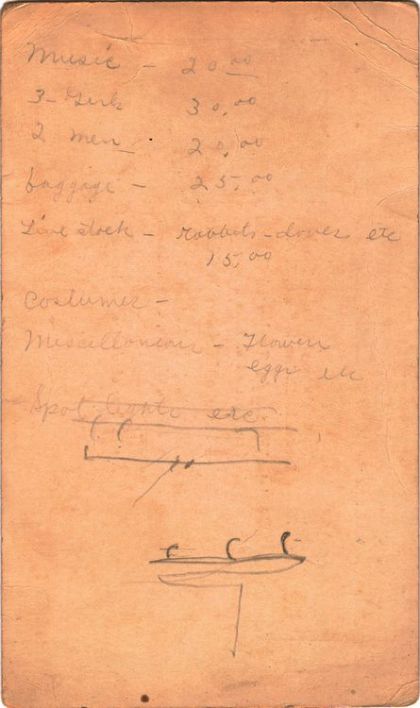 Music - 20.00
3- Girls 30.00
2 men 20.00
baggage - 25.00
Live stock - rabbits - doves etc
15.00
Costumes -
Miscellaneous - Flowers
eggs etc
Spot lights etc.